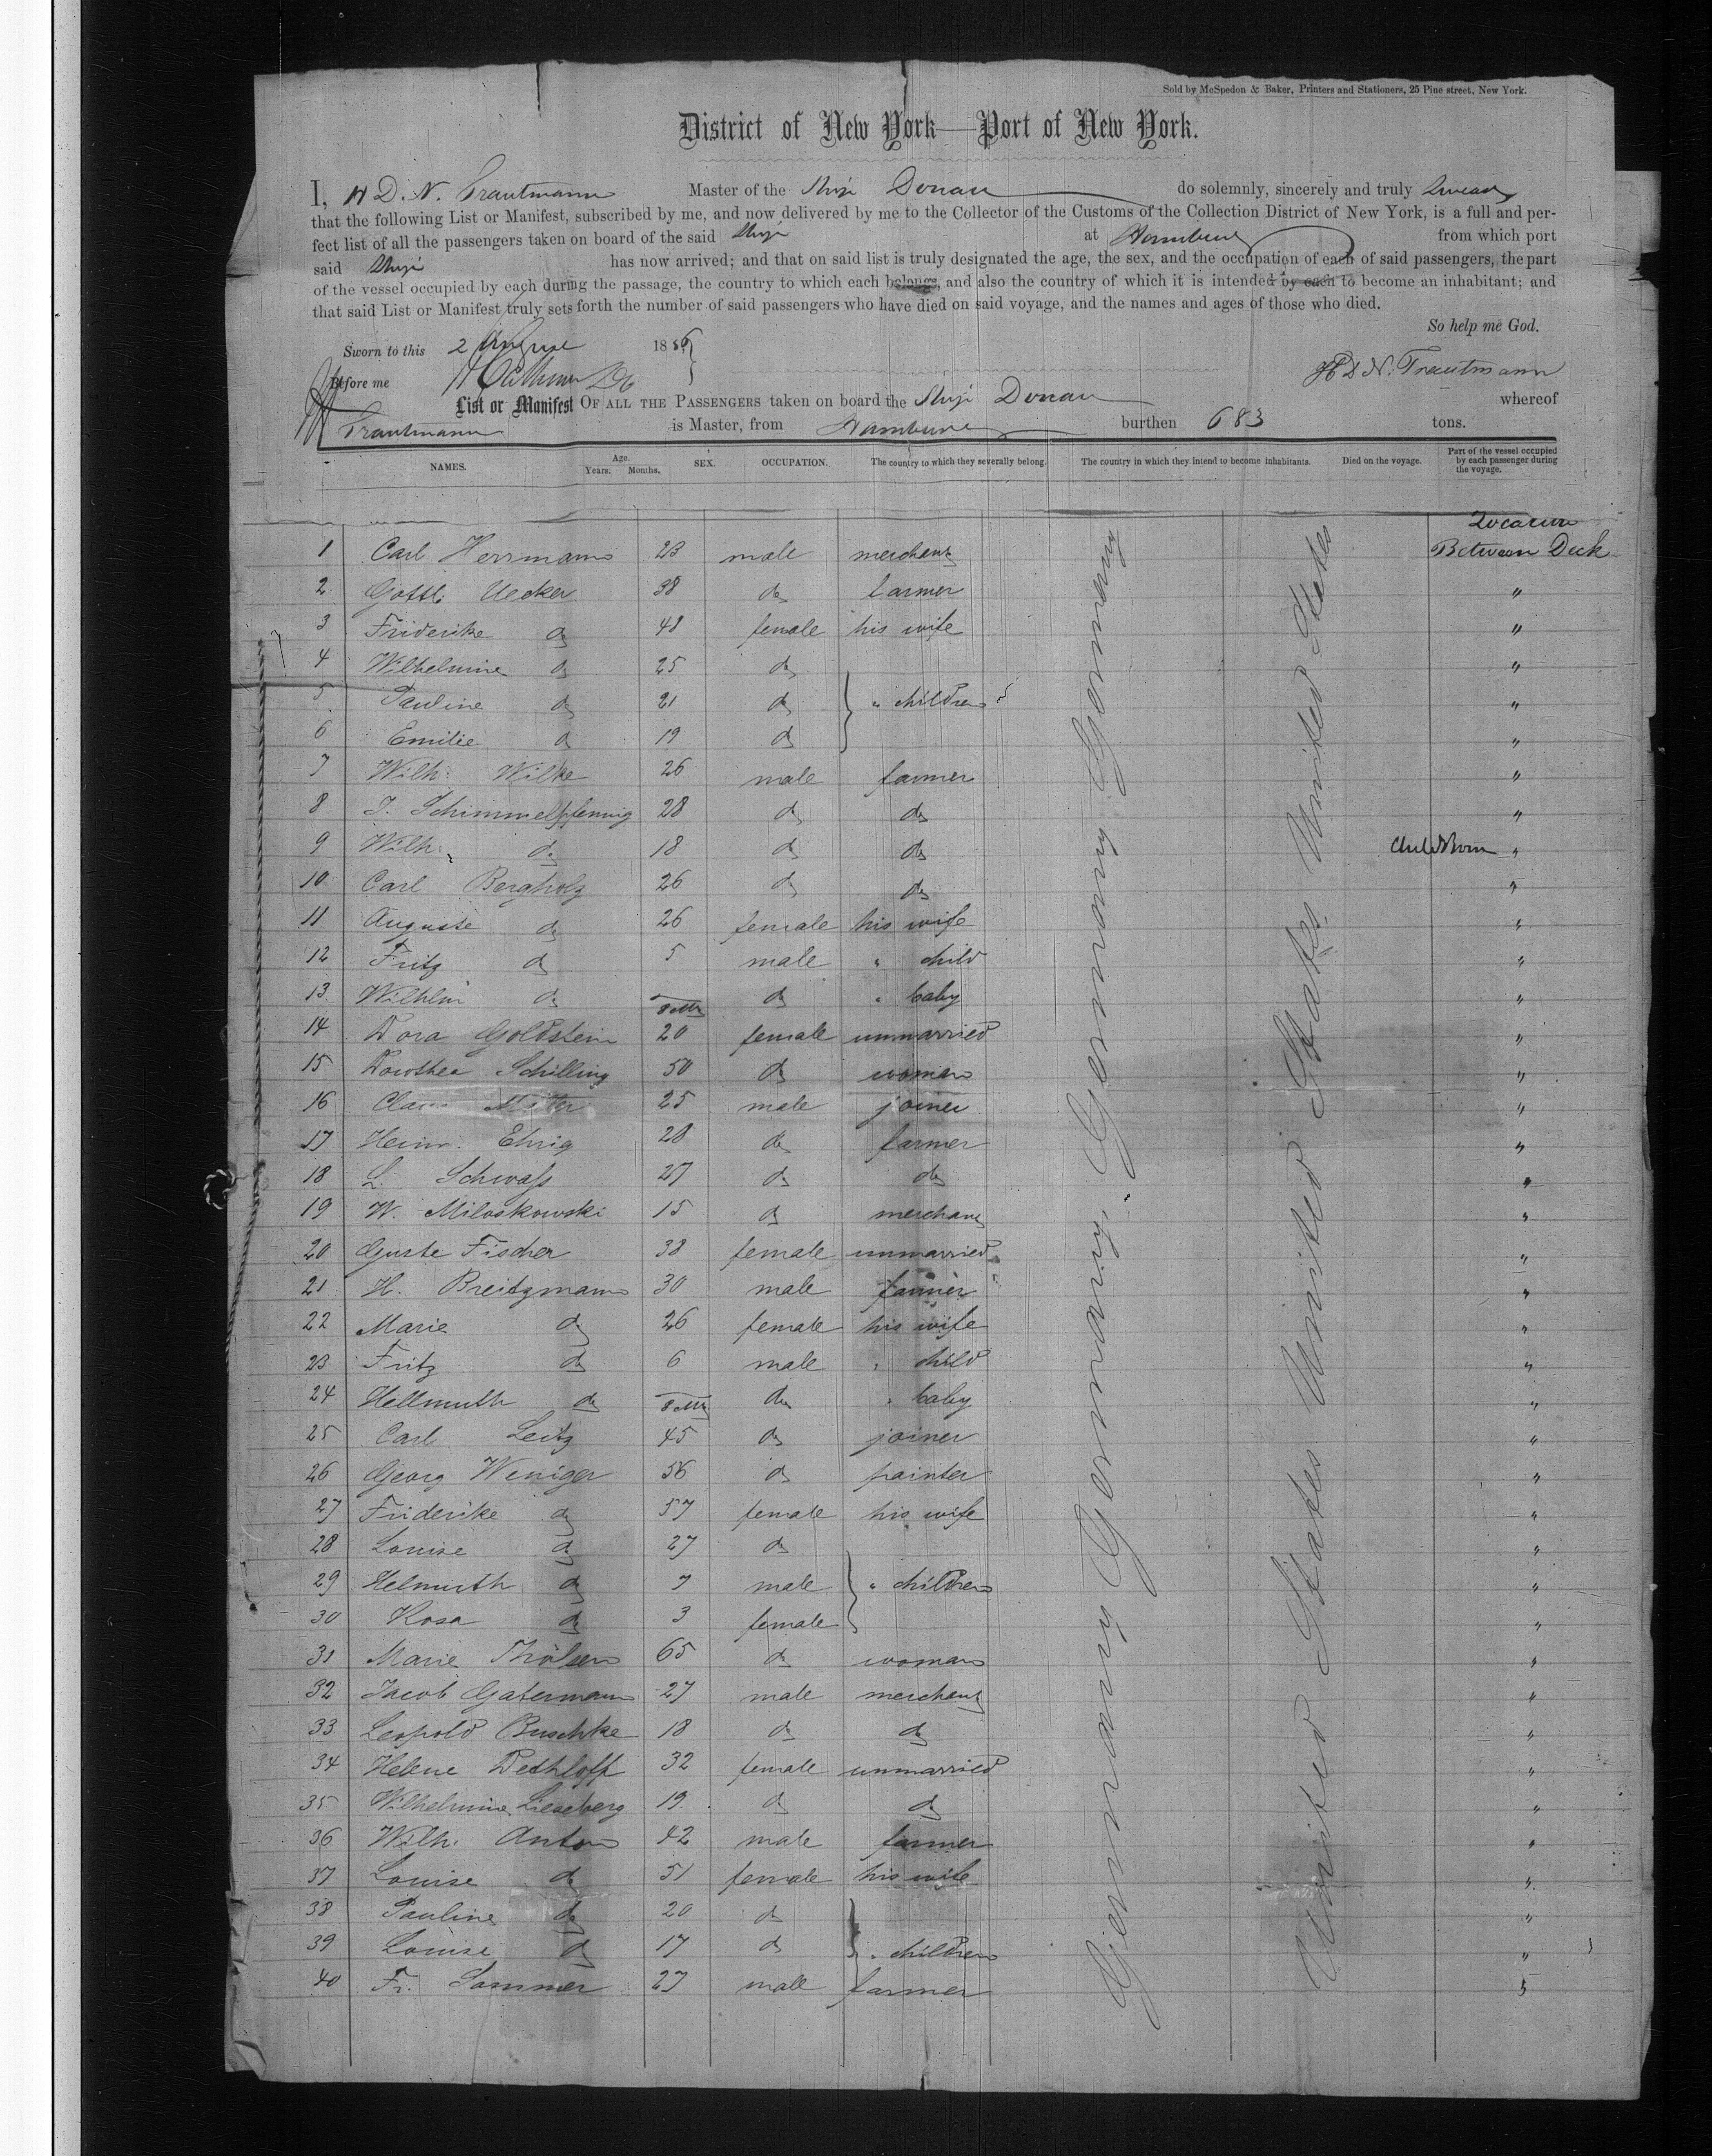 Sold by McSpedon & Baker, Printers and Stationers, 25 Pine street, New York.
District of New York—Port of New York.
I, H D. N. Trautmann Master of the Ship Donau do solemnly, sincerely and truly swear
that the following List or Manifest, subscribed by me, and now delivered by me to the Collector of the Customs of the Collection District of New York, is a full and per-
fect list of all the passengers taken on board of the said Ship at Hamburg from which port
said Ship has now arrived; and that on said list is truly designated the age, the sex, and the occupation of each of said passengers, the part
of the vessel occupied by each during the passage, the country to which each belongs, and also the country of which it is intended by each to become an inhabitant; and
that said List or Manifest truly sets forth the number of said passengers who have died on said voyage, and the names and ages of those who died.
So help me God.
Sworn to this 2 August 186
Before me H D N. Trautmann
List or Manifest OF ALL THE PASSENGERS taken on board the Ship Donau whereof
Trautmann is Master, from Hamburg burthen 683 tons.
NAMES. Age. Years. Months. SEX. OCCUPATION. The country to which they severally belong. The country in which they intend to become inhabitants. Died on the voyage. Part of the vessel occupied by each passenger during the voyage.
1 Carl Herrmann 23 male merchant Between Deck
2 Gottl. Uecker 38 do farmer "
3 Friderike do 48 female his wife "
4 Wilhelmine do 25 do "
5 Pauline do 21 do " children "
6 Emilie do 19 do "
7 Wilh. Wilke 26 male farmer "
8 J. Schimmelpfennig 28 do do "
9 Wilh. do 18 do do "
10 Carl Bergholz 26 do do "
11 Auguste do 26 female his wife "
12 Fritz do 5 male " child "
13 Wilhlm do 8 Mt do " baby "
14 Dora Goldstein 20 female unmarried "
15 Dorothea Schilling 50 do woman "
16 Claus 25 male joiner "
17 Heinr. Ehrig 28 do farmer "
18 L. Schwass 27 do do "
19 W. Miloskowski 15 do merchant "
20 Guste Fischer 38 female unmarried "
21 H. Breitzmann 30 male farmer "
22 Marie do 26 female his wife "
23 Fritz do 6 male " child "
24 Hellmuth do 8 Mt do " baby "
25 Carl Leitz 45 do joiner "
26 Georg Weniger 56 do painter "
27 Friderike do 57 female his wife "
28 Louise do 27 do "
29 Helmuth do 7 male " children "
30 Rosa do 3 female "
31 Marie Thölsen 65 do woman "
32 Jacob Gatermann 27 male merchant "
33 Leopold Buschke 18 do do "
34 Helene Dethloff 32 female unmarried "
35 Wilhelmine Lieseberg 19 do do "
36 Wilh. Anton 42 male farmer "
37 Louise do 51 female his wife "
38 Pauline do 20 do "
39 Louise do 17 do " children "
40 Fr. Sommer 27 male farmer "
Germany Germany. Germany Germany
United States United States. United States